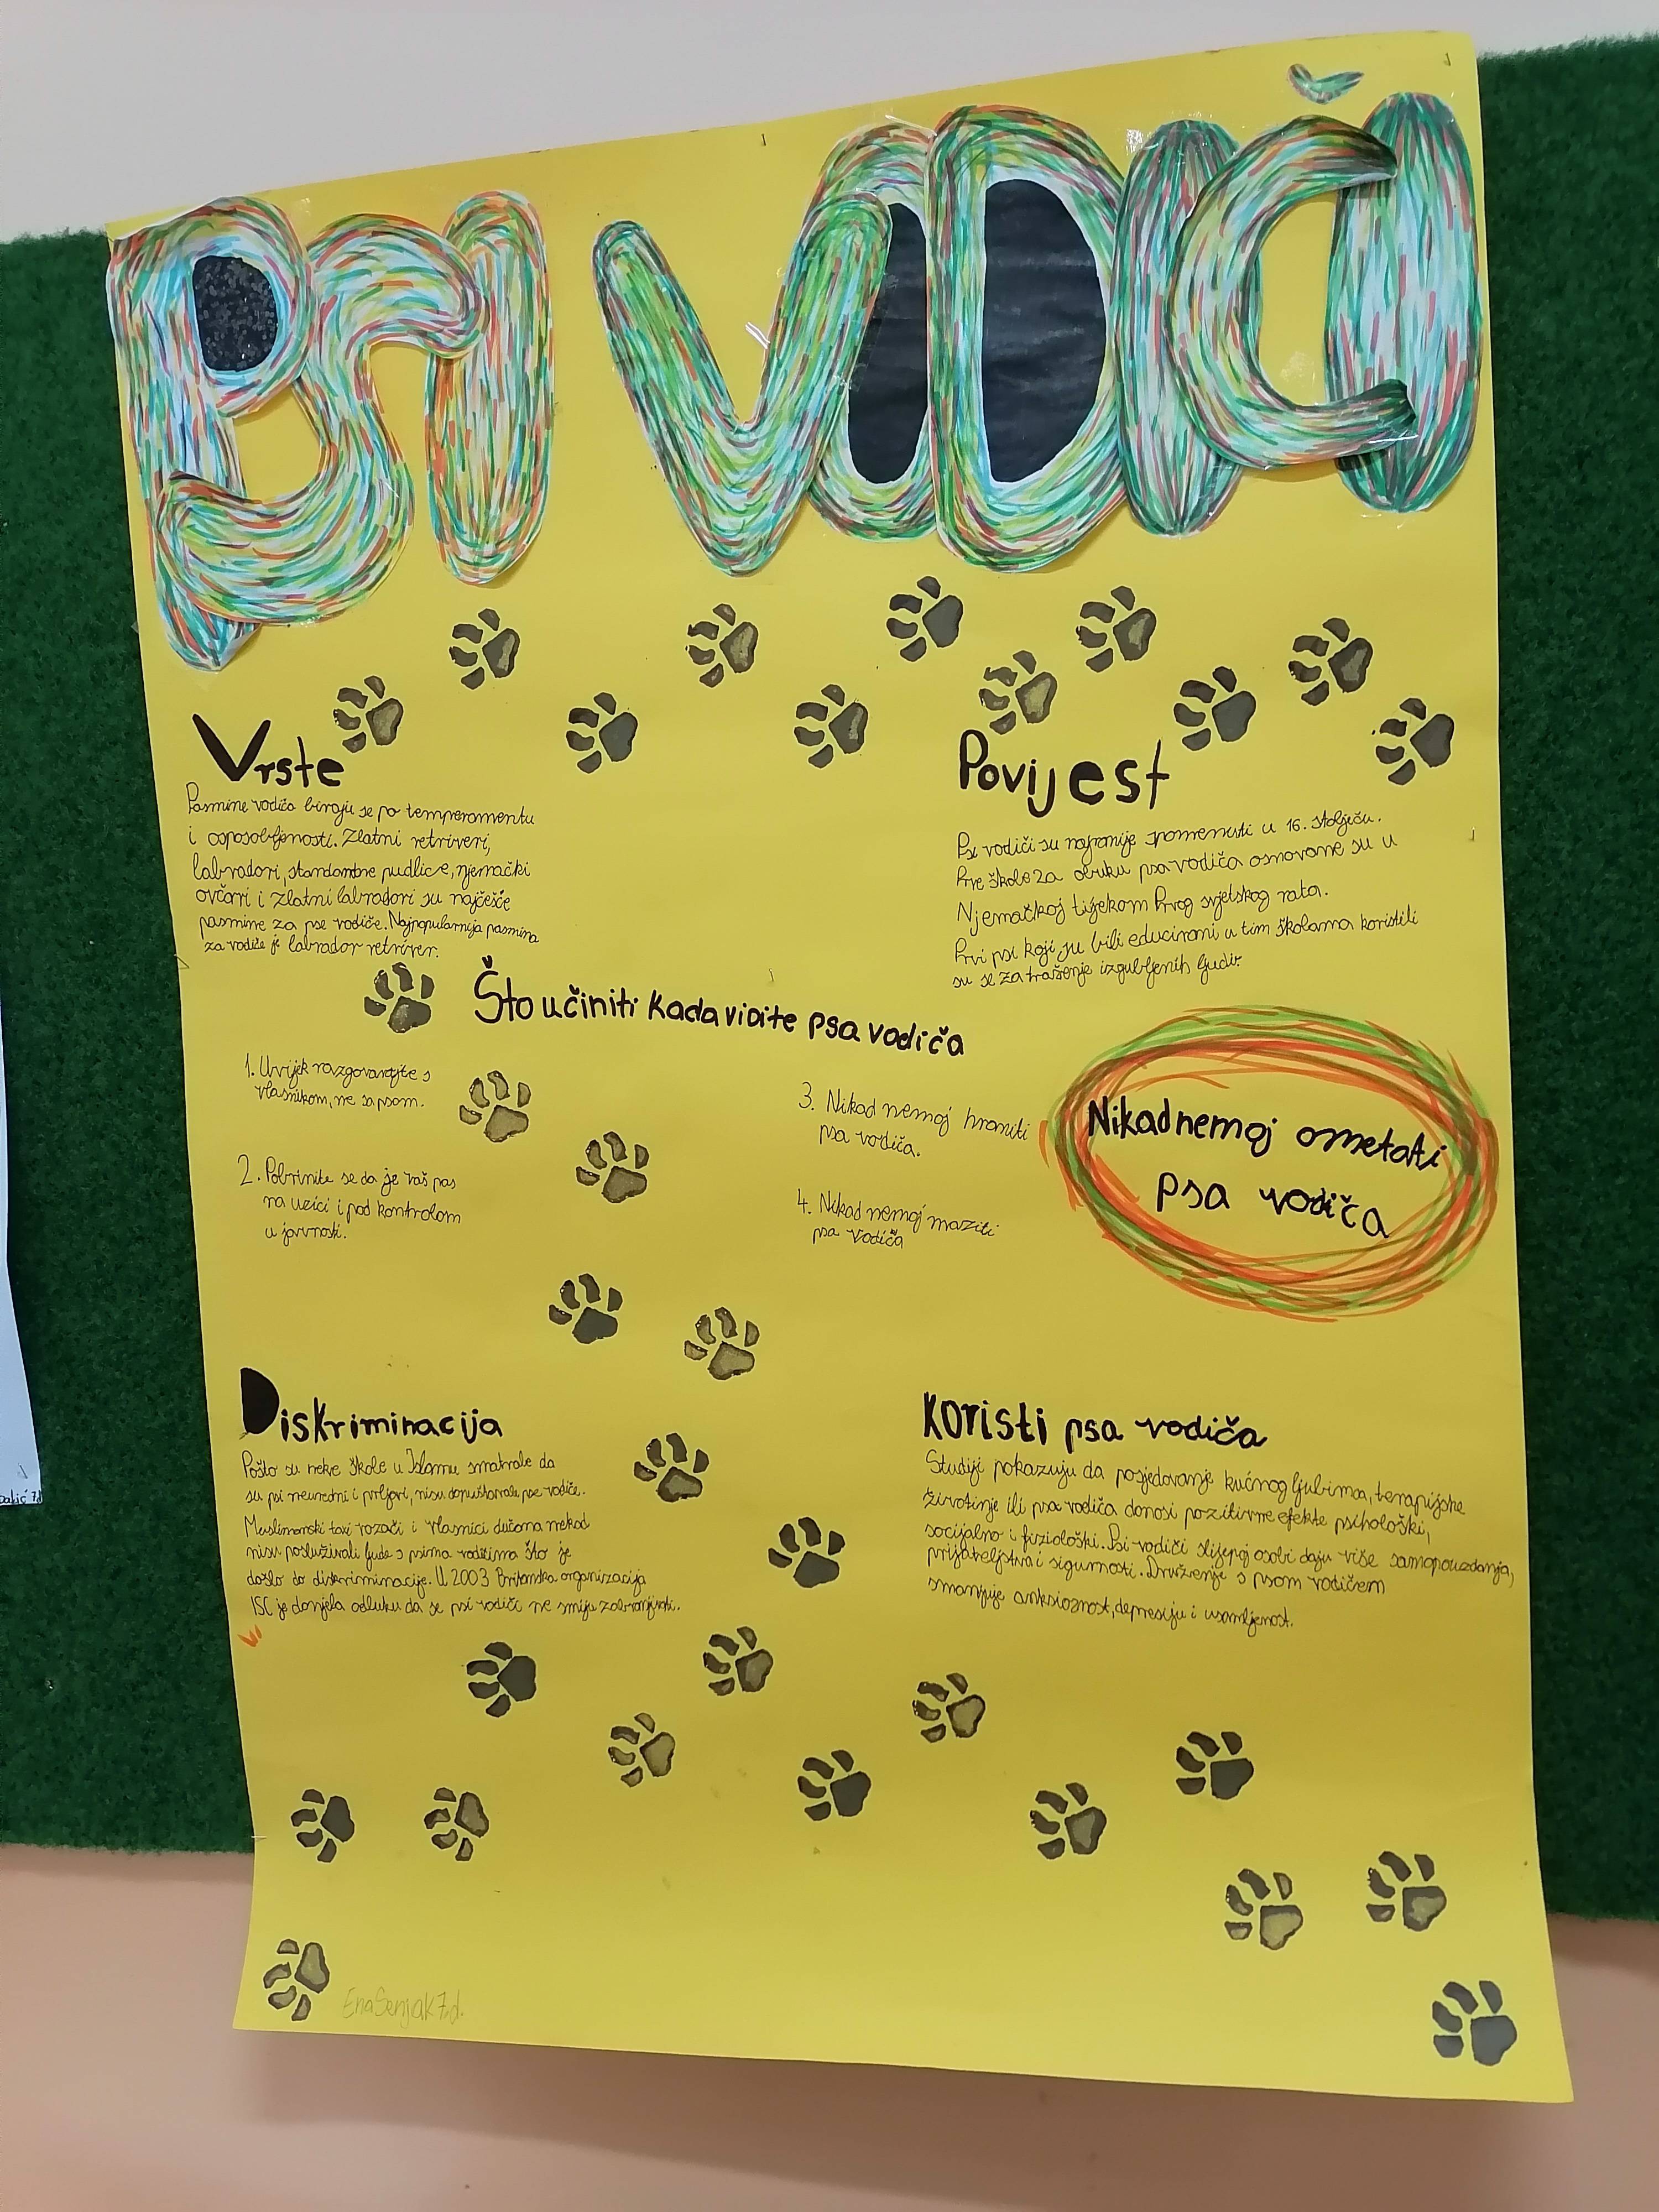 PSI VODIČI
Vrste
Pasmine vodiča biraju se po temperamentu
i osposobljenosti. Zlatni retriveri,
labradori, standardne pudlice, njemački
ovčari i zlatni labradori su najčešće
pasmine za pse vodiče. Najpopularnija pasmina
za vodiče je labrador retriver.
Povijest
Psi vodiči su najranije spomenuti u 16. stoljeću.
Prve škole za obuku psa vodiča osnovane su u
Njemačkoj tijekom Prvog svjetskog rata.
Prvi psi koji su bili educirani u tim školama koristili
su se za traženje izgubljenih ljudi.
Što učiniti kada vidite psa vodiča
1. Uvijek razgovarajte s
vlasnikom, ne sa psom.
2. Pobrinite se da je vaš pas
na uzici i pod kontrolom
u javnosti.
3. Nikad nemoj hraniti
psa vodiča.
4. Nikad nemoj maziti
psa vodiča
Nikad nemoj ometati
psa vodiča
Diskriminacija
Pošto su neke škole u Islamu smatrale da
su psi neuredni i prljavi, nisu dopuštavale pse vodiče.
Muslimanski taxi vozači i vlasnici dućana nekad
nisu posluživali ljude s psima vodičima što je
došlo do diskriminacije. U 2003 Britanska organizacija
ISC je donjela odluku da se psi vodiči ne smiju zabranjivati.
Koristi psa vodiča
Studiji pokazuju da posjedovanje kućnog ljubimca, terapijske
životinje ili psa vodiča donosi pozitivne efekte psihološki,
socijalno i fiziološki. Psi vodiči slijepoj osobi daju više samopouzdanja,
prijateljstva i sigurnosti. Druženje s psom vodičem
smanjuje anksioznost, depresiju i usamljenost.
Ena Senjak 7.d.